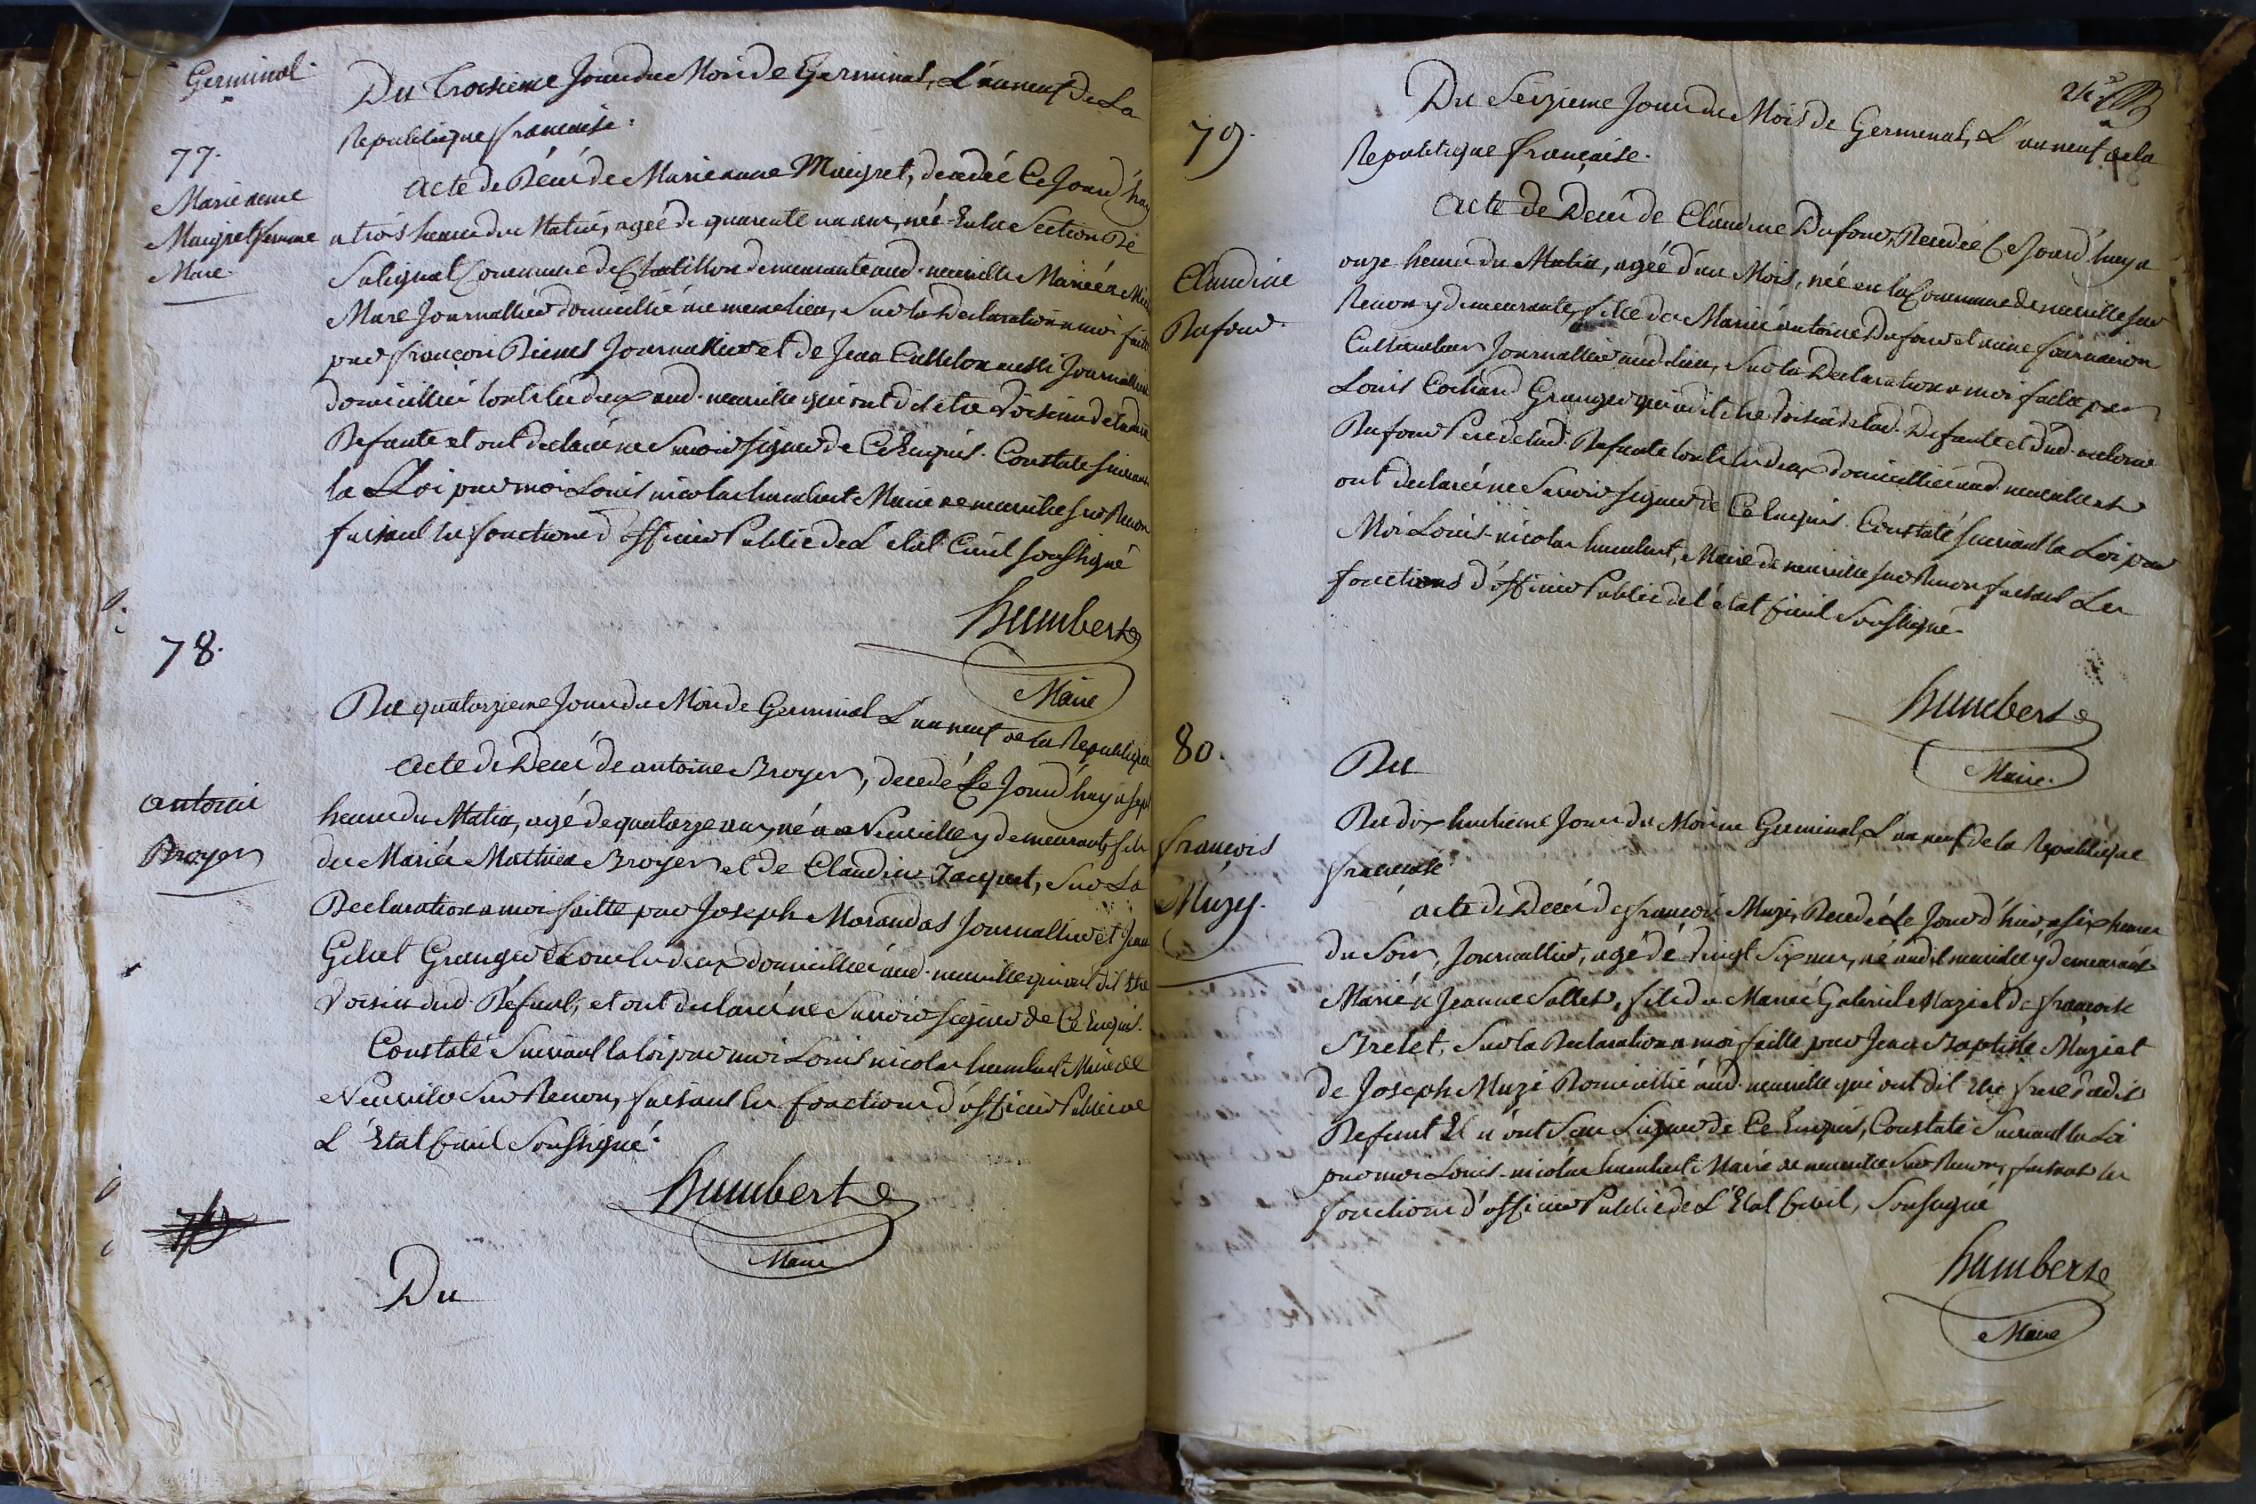 Germinal.
77.
Marie anne
Maigret femme
Mare.
Du troisieme Jour du Mois de Germinal, L'an neuf de La
Republique francaise.
acte de Décé de Marie anne Maigret, decedée Ce Jourd'huy
a trois heures du Matin, agée de quarente un ans, née En la Section De
Salignat Commune de Chatillon demeurante aud. neuville Mariée a
Mare Journallier domicillié au meme lieu, Sur la Declaration a moi faitte
par francois Journallier et de Jean aussi Journallier
domicilliés touts les deux aud. neuville qui ont dit etre voisins de ladite
Defunte et ont declaré ne Savoir signer de Ce Enquis. Constaté suivant
la Loi par moi Louis nicolas humbert Maire de neuville sur Renon
faisant les fonctions d'officier Public de L'etat Civil soussigné
humbert
Maire
78.
antoine
Broyer
Du quatorzieme Jour du Mois de Germinal L'an neuf de la Republique
acte de Decé de antoine Broyer, decedé Ce Jourd'huy a sept
heures du Matin, agé de quatorze ans, né a Neuville y demeurant, fils
du Marié Mathieu Broyer et de Claudine Jacquet, Sur La
Declaration a moi faitte par Joseph Morandas Journallier et Jean
Granger touts les deux domicilliés aud. neuville qui ont dit etre
Voisin dud. Défunt, et ont declaré ne Savoir signer de Ce Enquis.
Constaté Suivant la loi par moi Louis nicolas humbert Maire de
Neuville Sur Renon, faisant les fonctions d'officier Public de
L'Etat Civil Soussigné.
humbert
Maire
Du
79.
Claudine
Dufour.
Du Seizieme Jour du Mois de Germinal, L'an neuf de la
Republique française.
acte de Decé de Claudine Dufour, Decedée Ce Jourd'huy a
onze heures du Matin, agée d'un Mois, née en la Commune de neuville sur
Renon y demeurante, fille du Marié antoine Dufour et anne
Cultivateur Journallier aud. lieu, Sur la Declaration a moi faitte par
Louis Cochard Granger qui a dit etre Voisin de lad. Defunte et dud. antoine
Dufour Pere de lad. Defunte touts les deux domicilliés aud. neuville et
ont declaré ne Savoir signer de Ce Enquis. Constaté suivant la Loi par
Moi Louis-nicolas humbert, Maire de neuville sur Renon faisant Les
fonctions d'officier Public de l'état Civil Soussigné.
humbert
Maire.
80.
françois
Muzy.
Du
Du dix huitieme Jour du Mois de Germinal, L'an neuf de la Republique
francaise.
acte de Decé de francois Muzi, Decedé Le Jour d'hier, a six heures
du Soir, Journallier, agé de vingt Six ans, né aud. neuville y demeurant
Marié a Jeanne Sallet, fils du Marié Gabriel Muzi et de francoise
Brelet, Sur la Declaration a moi faitte par Jean Baptiste Muzi et
de Joseph Muzi Domicillié aud. neuville qui ont dit etre frere dudit
Defunt Et n'ont Seu Signer de Ce Enquis, Constaté Suivant la Loi
par moi Louis-nicolas humbert Maire de neuville Sur Renon, faisant les
fonctions d'officier Public de L'Etat Civil, Soussigné
humbert
Maire